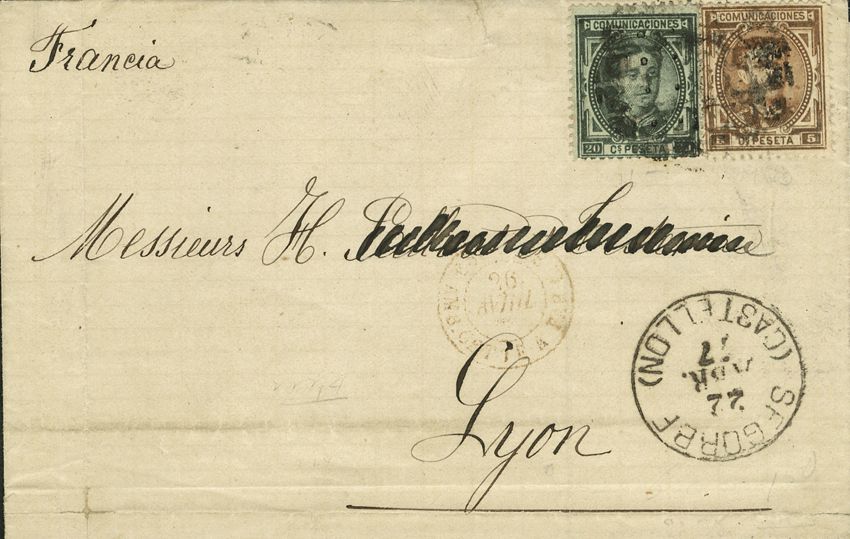 Francia
COMUNICACIONES
20 Cs PESETA 20
COMUNICACIONES
5 Cs PESETA 5
Messieurs H.
26
AVRIL
CETTE A
Lyon
SEGORBE (CASTELLON)
22
ABR.
77